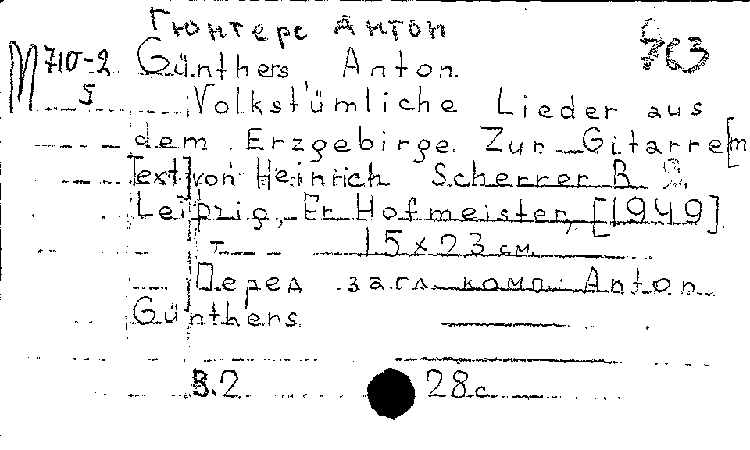 Гюнтерс Антон
М 710-2 Günthers, Anton.
5 Volkstümliche Lieder aus
dem Erzgebirge. Zur Gitarre [m
Text] von Heinrich Scherrer B. 2.
Leipzig, Fr. Hofmeister, [1949].
15 x 23 см.
Перед загл. комп. Anton
Günthers.
В.2 28с.